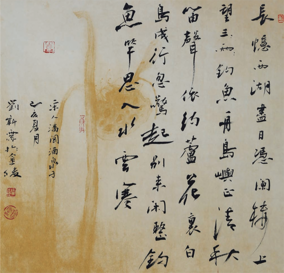 長憶西湖盡日憑闌樓上
望三兩釣魚舟島嶼正清秋
笛聲依約蘆花裏白
鳥成行忽驚起別來閒整釣
魚竿思入水雲寒
宋人潘閬酒泉子
夏月
劉新